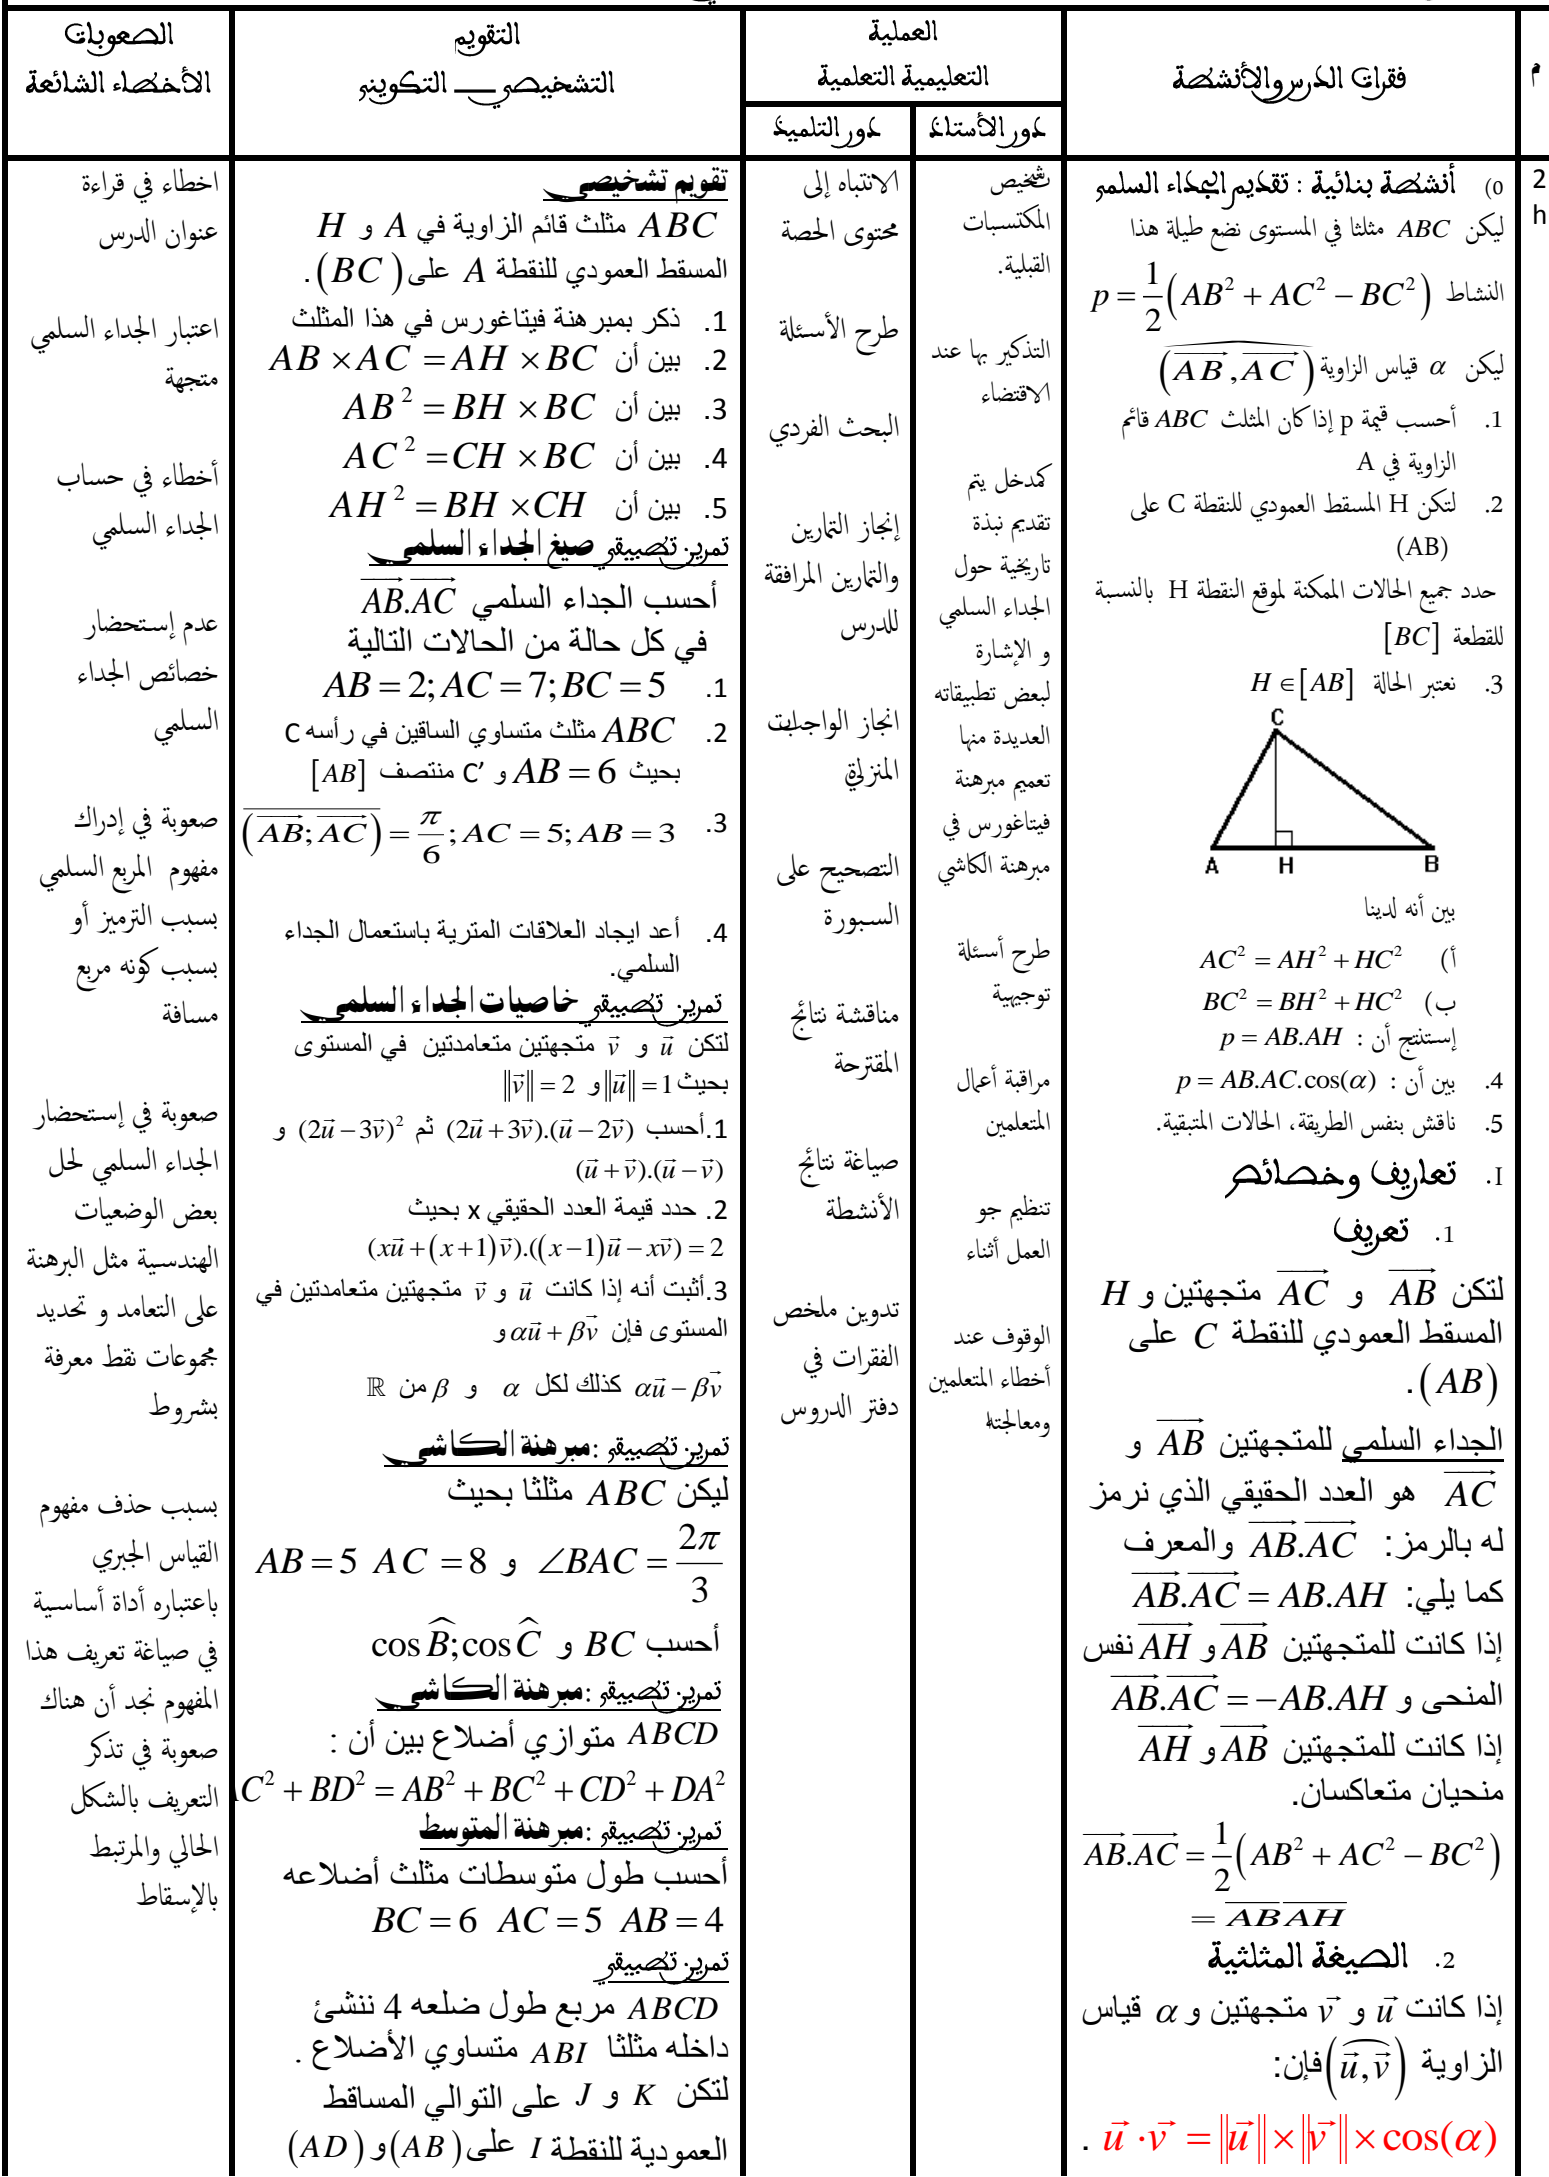 م
فقرات الدرس والأنشطة
العملية
التعليمية التعلمية
دور الأستاذ
دور التلميذ
التقويم
التشخيصي ـــ التكويني
الصعوبات
الأخطاء الشائعة
2
h
0) أنشطة بنائية : تقديم الجداء السلمي
ليكن ABC مثلثا في المستوى نضع طيلة هذا
النشاط p = \frac{1}{2}(AB² + AC² − BC²)
ليكن α قياس الزاوية (\overrightarrow{AB},\overrightarrow{AC})
1. أحسب قيمة p إذا كان المثلث ABC قائم
الزاوية في A
2. لتكن H المسقط العمودي للنقطة C على
(AB)
حدد جميع الحالات الممكنة لموقع النقطة H بالنسبة
للقطعة [BC]
3. نعتبر الحالة H ∈ [AB]
C
A H B
بين أنه لدينا
أ) AC² = AH² + HC²
ب) BC² = BH² + HC²
إستنتج أن : p = AB.AH
4. بين أن : p = AB.AC.cos(α)
5. ناقش بنفس الطريقة، الحالات المتبقية.
I. تعاريف وخصائص
1. تعريف
لتكن \overrightarrow{AB} و \overrightarrow{AC} متجهتين و H
المسقط العمودي للنقطة C على
(AB).
الجداء السلمي للمتجهتين \overrightarrow{AB} و
\overrightarrow{AC} هو العدد الحقيقي الذي نرمز
له بالرمز: \overrightarrow{AB}.\overrightarrow{AC} والمعرف
كما يلي: \overrightarrow{AB}.\overrightarrow{AC} = AB.AH
إذا كانت للمتجهتين \overrightarrow{AB} و \overrightarrow{AH} نفس
المنحى و \overrightarrow{AB}.\overrightarrow{AC} = −AB.AH
إذا كانت للمتجهتين \overrightarrow{AB} و \overrightarrow{AH}
منحيان متعاكسان.
\overrightarrow{AB}.\overrightarrow{AC} = \frac{1}{2}(AB² + AC² − BC²)
= \overline{AB}\,\overline{AH}
2. الصيغة المثلثية
إذا كانت \vec{u} و \vec{v} متجهتين و α قياس
الزاوية (\vec{u},\vec{v}) فإن:
\vec{u}·\vec{v} = ‖\vec{u}‖×‖\vec{v}‖×cos(α) .
تشخيص
المكتسبات
القبلية.
التذكير بها عند
الاقتضاء
كمدخل يتم
تقديم نبذة
تاريخية حول
الجداء السلمي
و الإشارة
لبعض تطبيقاته
العديدة منها
تعميم مبرهنة
فيتاغورس في
مبرهنة الكاشي
طرح أسئلة
توجيهية
مراقبة أعمال
المتعلمين
تنظيم جو
العمل أثناء
الوقوف عند
أخطاء المتعلمين
ومعالجتها
الانتباه إلى
محتوى الحصة
طرح الأسئلة
البحث الفردي
إنجاز التمارين
والتمارين المرافقة
للدرس
انجاز الواجبات
المنزلية
التصحيح على
السبورة
مناقشة نتائج
المقترحة
صياغة نتائج
الأنشطة
تدوين ملخص
الفقرات في
دفتر الدروس
تقويم تشخيصي
ABC مثلث قائم الزاوية في A و H
المسقط العمودي للنقطة A على (BC).
1. ذكر بمبرهنة فيتاغورس في هذا المثلث
2. بين أن AB × AC = AH × BC
3. بين أن AB² = BH × BC
4. بين أن AC² = CH × BC
5. بين أن AH² = BH × CH
تمرين تطبيقي صيغ الجداء السلمي
أحسب الجداء السلمي \overrightarrow{AB}.\overrightarrow{AC}
في كل حالة من الحالات التالية
1. AB = 2; AC = 7; BC = 5
2. ABC مثلث متساوي الساقين في رأسه C
بحيث AB = 6 و C′ منتصف [AB]
3. \overline{(\overrightarrow{AB};\overrightarrow{AC})} = \frac{π}{6}; AC = 5; AB = 3
4. أعد ايجاد العلاقات المترية باستعمال الجداء
السلمي.
تمرين تطبيقي خاصيات الجداء السلمي
لتكن \vec{u} و \vec{v} متجهتين متعامدتين في المستوى
بحيث ‖\vec{u}‖ = 1 و ‖\vec{v}‖ = 2
1.أحسب (2\vec{u}+3\vec{v}).(\vec{u}−2\vec{v}) ثم (2\vec{u}−3\vec{v})² و
(\vec{u}+\vec{v}).(\vec{u}−\vec{v})
2. حدد قيمة العدد الحقيقي x بحيث
(x\vec{u}+(x+1)\vec{v}).((x−1)\vec{u}−x\vec{v}) = 2
3.أثبت أنه إذا كانت \vec{u} و \vec{v} متجهتين متعامدتين في
المستوى فإن α\vec{u}+β\vec{v} و
α\vec{u}−β\vec{v} كذلك لكل α و β من ℝ
تمرين تطبيقي :مبرهنة الكاشي
ليكن ABC مثلثا بحيث
AB = 5 AC = 8 و ∠BAC = \frac{2π}{3}
أحسب BC و cos\widehat{B};cos\widehat{C}
تمرين تطبيقي :مبرهنة الكاشي
ABCD متوازي أضلاع بين أن :
C² + BD² = AB² + BC² + CD² + DA²
تمرين تطبيقي :مبرهنة المتوسط
أحسب طول متوسطات مثلث أضلاعه
BC = 6 AC = 5 AB = 4
تمرين تطبيقي
ABCD مربع طول ضلعه 4 ننشئ
داخله مثلثا ABI متساوي الأضلاع .
لتكن K و J على التوالي المساقط
العمودية للنقطة I على (AB) و (AD)
اخطاء في قراءة
عنوان الدرس
اعتبار الجداء السلمي
متجهة
أخطاء في حساب
الجداء السلمي
عدم إستحضار
خصائص الجداء
السلمي
صعوبة في إدراك
مفهوم المربع السلمي
بسبب الترميز أو
بسبب كونه مربع
مسافة
صعوبة في إستحضار
الجداء السلمي لحل
بعض الوضعيات
الهندسية مثل البرهنة
على التعامد و تحديد
مجموعات نقط معرفة
بشروط
بسبب حذف مفهوم
القياس الجبري
باعتباره أداة أساسية
في صياغة تعريف هذا
المفهوم نجد أن هناك
صعوبة في تذكر
التعريف بالشكل
الحالي والمرتبط
بالإسقاط